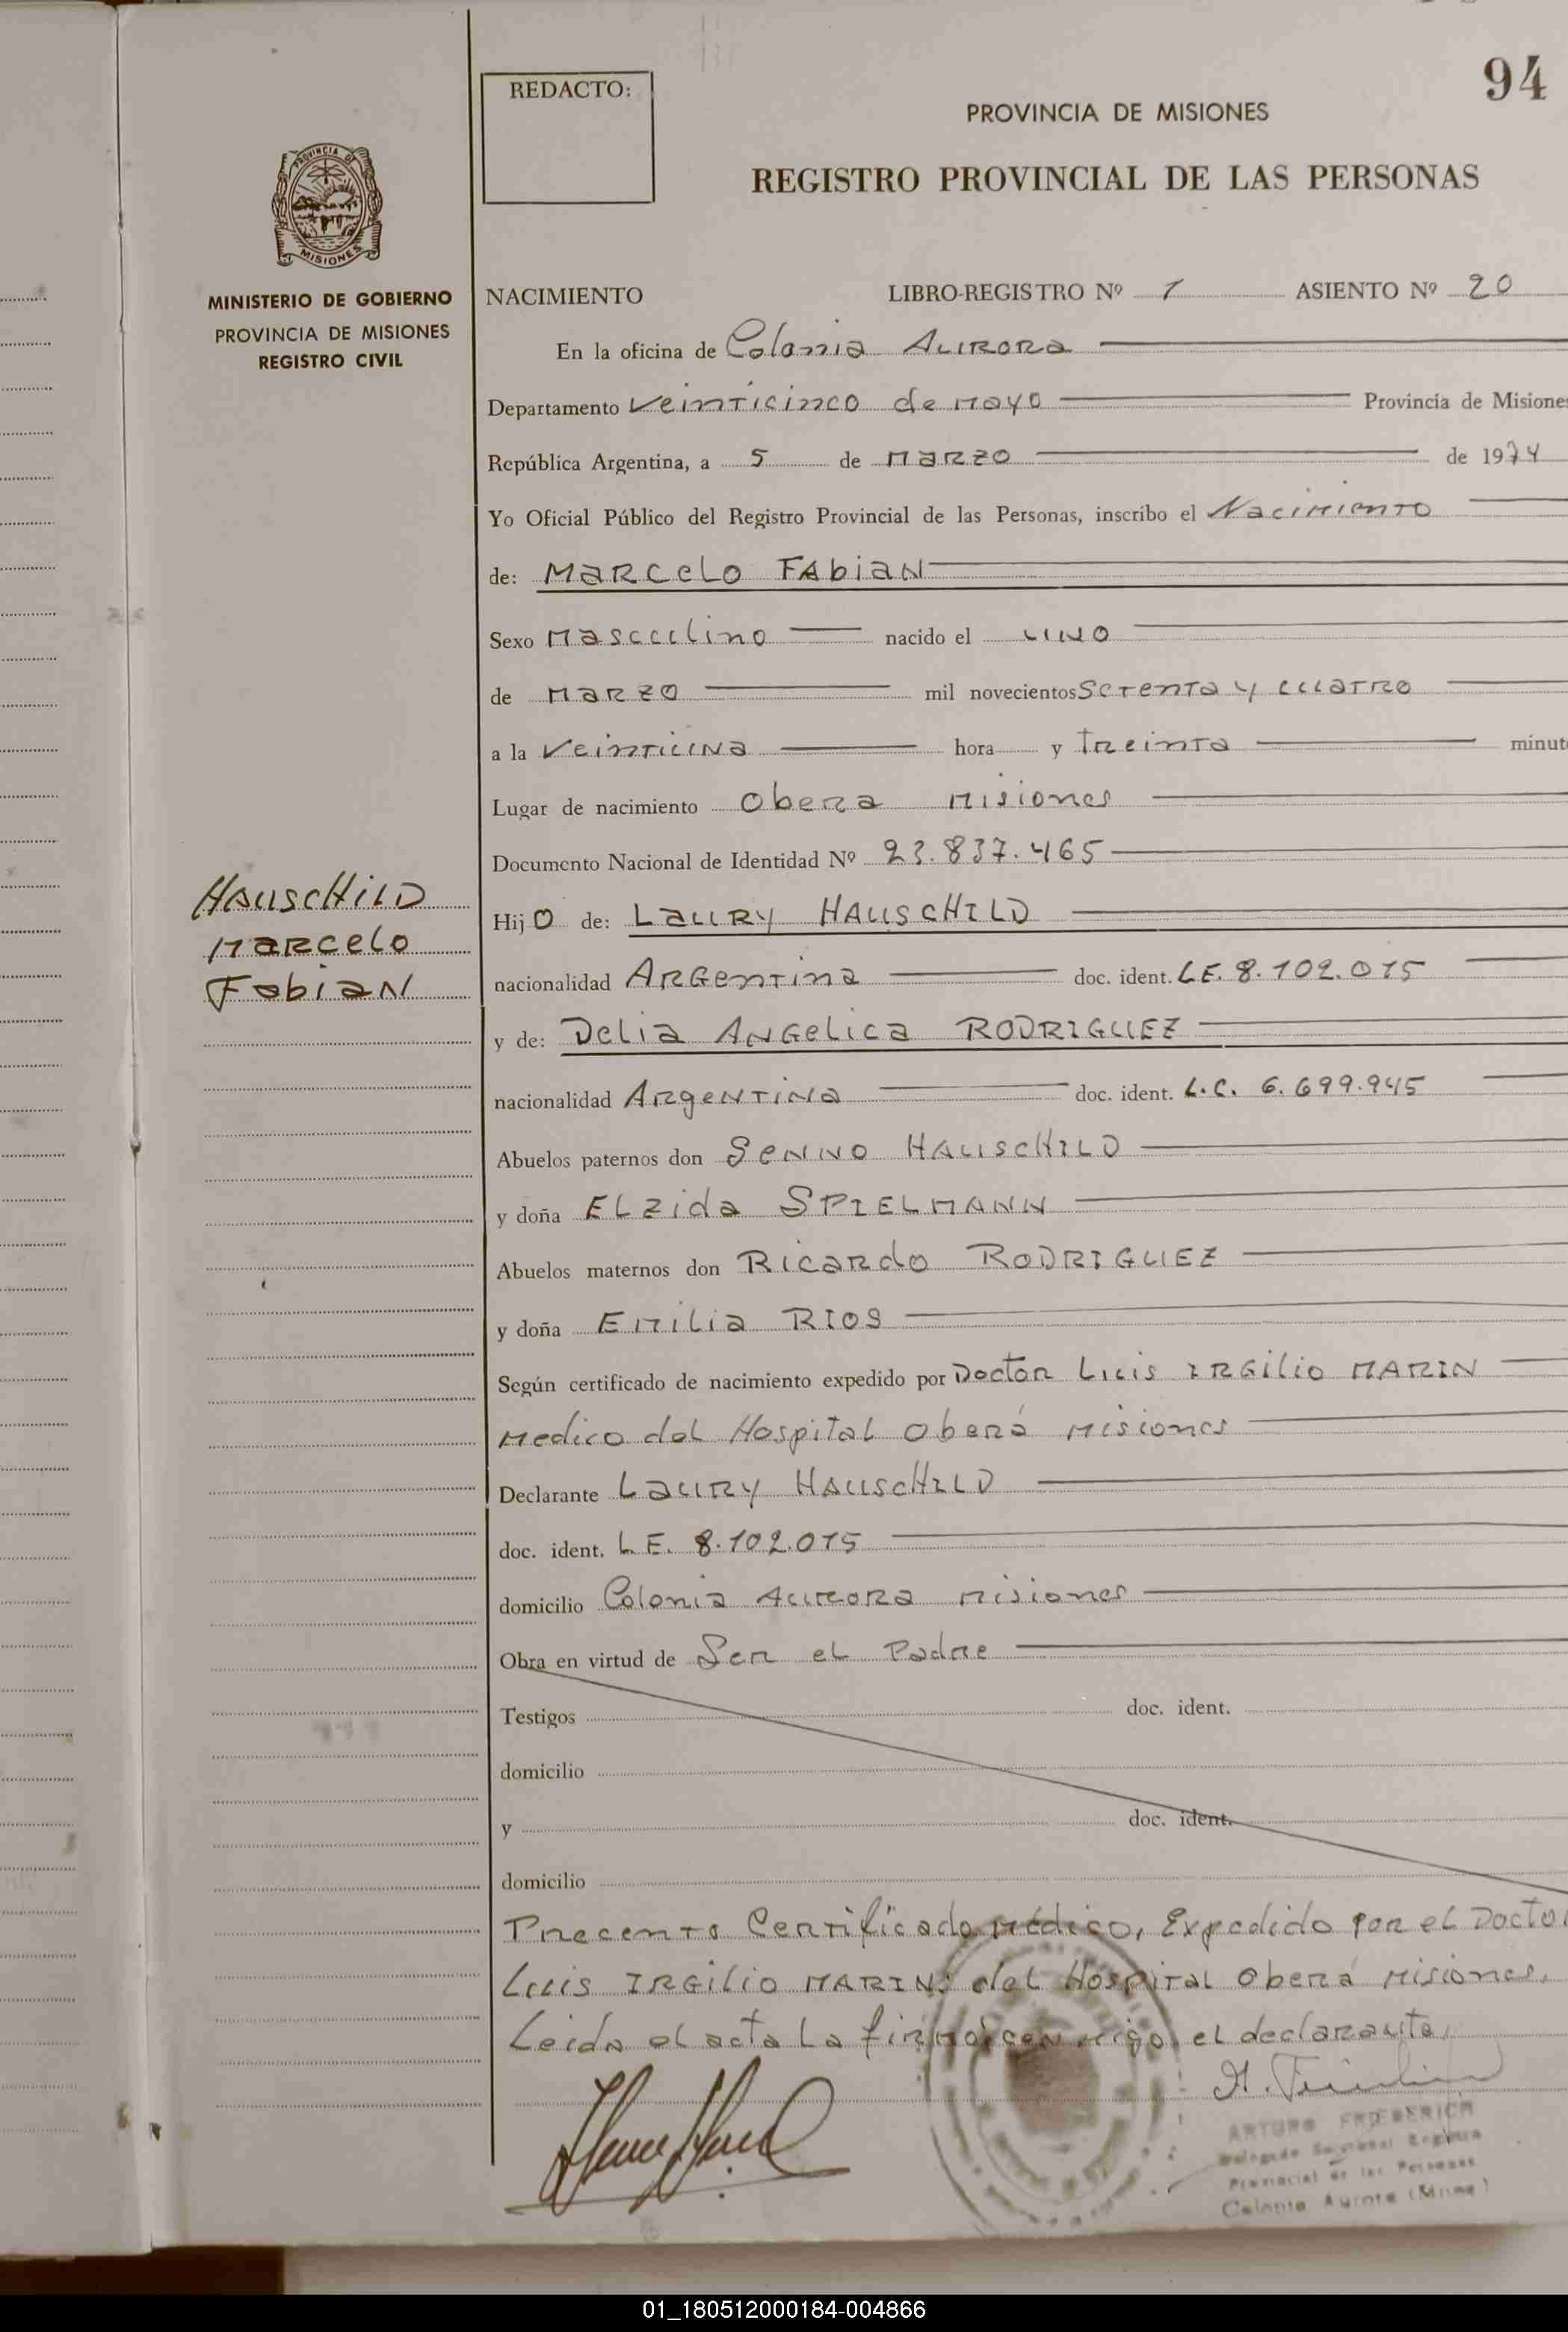 94
REDACTO:
PROVINCIA DE MISIONES
REGISTRO PROVINCIAL DE LAS PERSONAS
PROVINCIA DE
MISIONES
MINISTERIO DE GOBIERNO
PROVINCIA DE MISIONES
REGISTRO CIVIL
NACIMIENTO LIBRO-REGISTRO Nº 1 ASIENTO Nº 20
En la oficina de Colonia Aurora
Departamento Veinticinco de Mayo Provincia de Misiones
República Argentina, a 5 de Marzo de 1974
Yo Oficial Público del Registro Provincial de las Personas, inscribo el Nacimiento
de: Marcelo Fabian
Sexo Masculino nacido el UNO
de Marzo mil novecientos Setenta y cuatro
a la Veintiuna hora y treinta minut
Lugar de nacimiento Obera Misiones
Documento Nacional de Identidad Nº 23.837.465
HAUSCHILD
Marcelo
Fabian
Hijo de: Laury HAUSCHILD
nacionalidad Argentina doc. ident. L.E. 8.102.015
y de: Delia Angelica RODRIGUEZ
nacionalidad Argentina doc. ident. L.C. 6.699.945
Abuelos paternos don Senno HAUSCHILD
y doña Elzida SPIELMANN
Abuelos maternos don Ricardo RODRIGUEZ
y doña Emilia RIOS
Según certificado de nacimiento expedido por Doctor Luis IRGilio MARIN
Medico del Hospital Oberá Misiones
Declarante Laury HAUSCHILD
doc. ident. L.E. 8.102.015
domicilio Colonia Aurora Misiones
Obra en virtud de Ser el Padre
Testigos doc. ident.
domicilio
y doc. ident.
domicilio
Precento Certificado Médico, Expedido por el Doctor
Luis IRGilio MARIN: del Hospital Oberá Misiones.
Leida el acta la firmó conmigo el declarante,
ARTURO FRIEDERICH
Delegado Seccional Registro
Provincial de las Personas
Colonia Aurora (Mnes)
01_180512000184-004866